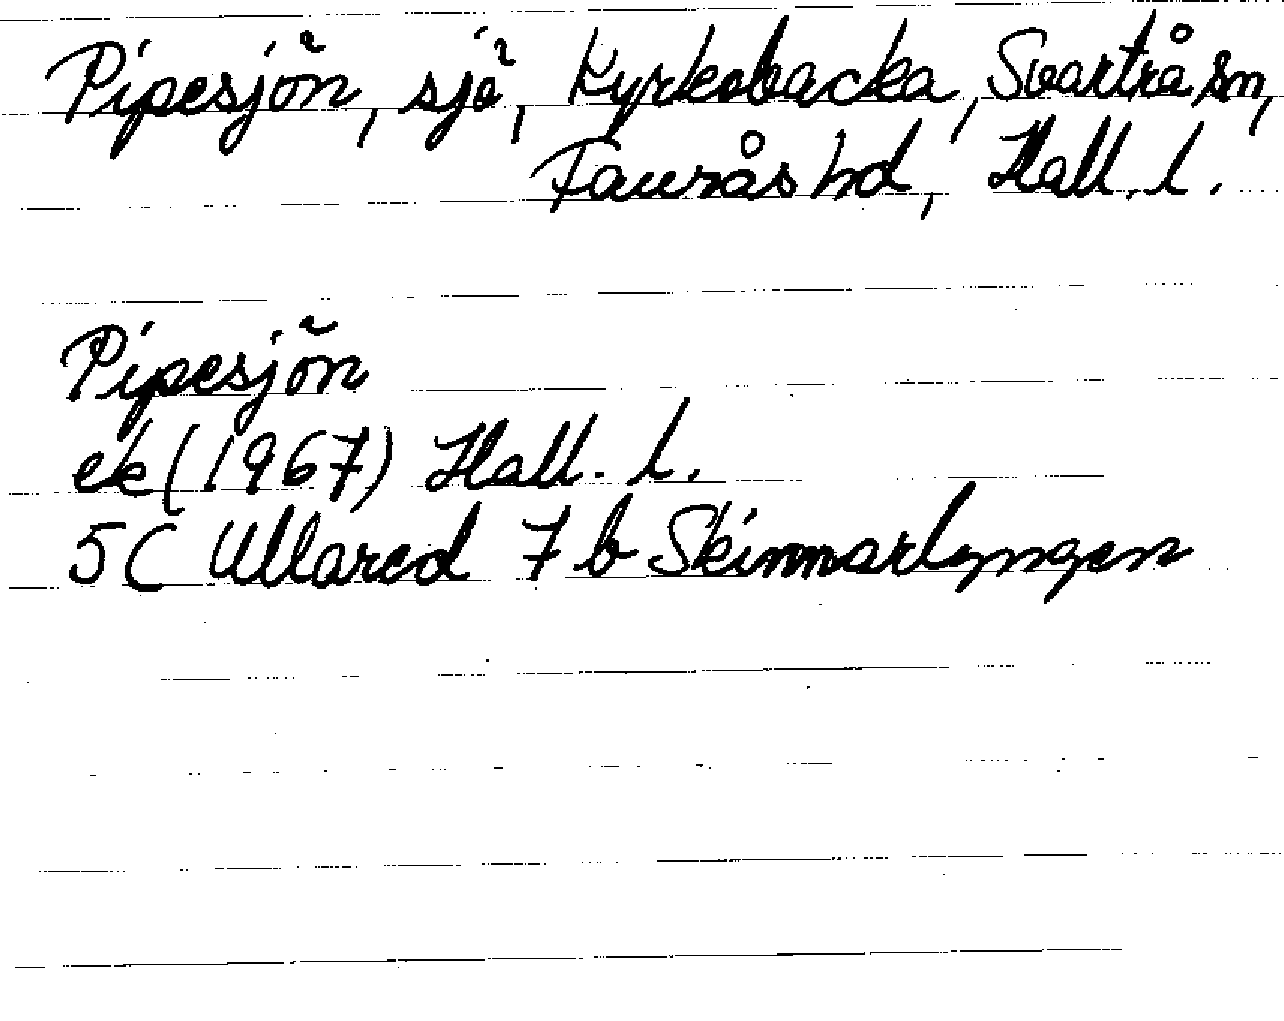 Pipesjön, sjö, Kyrkobacka, Svartrå sn,
Faurås hd, Hall. l.
Pipesjön
ek (1967) Hall. l.
5C Ullared 7 b Skinnarlyngen